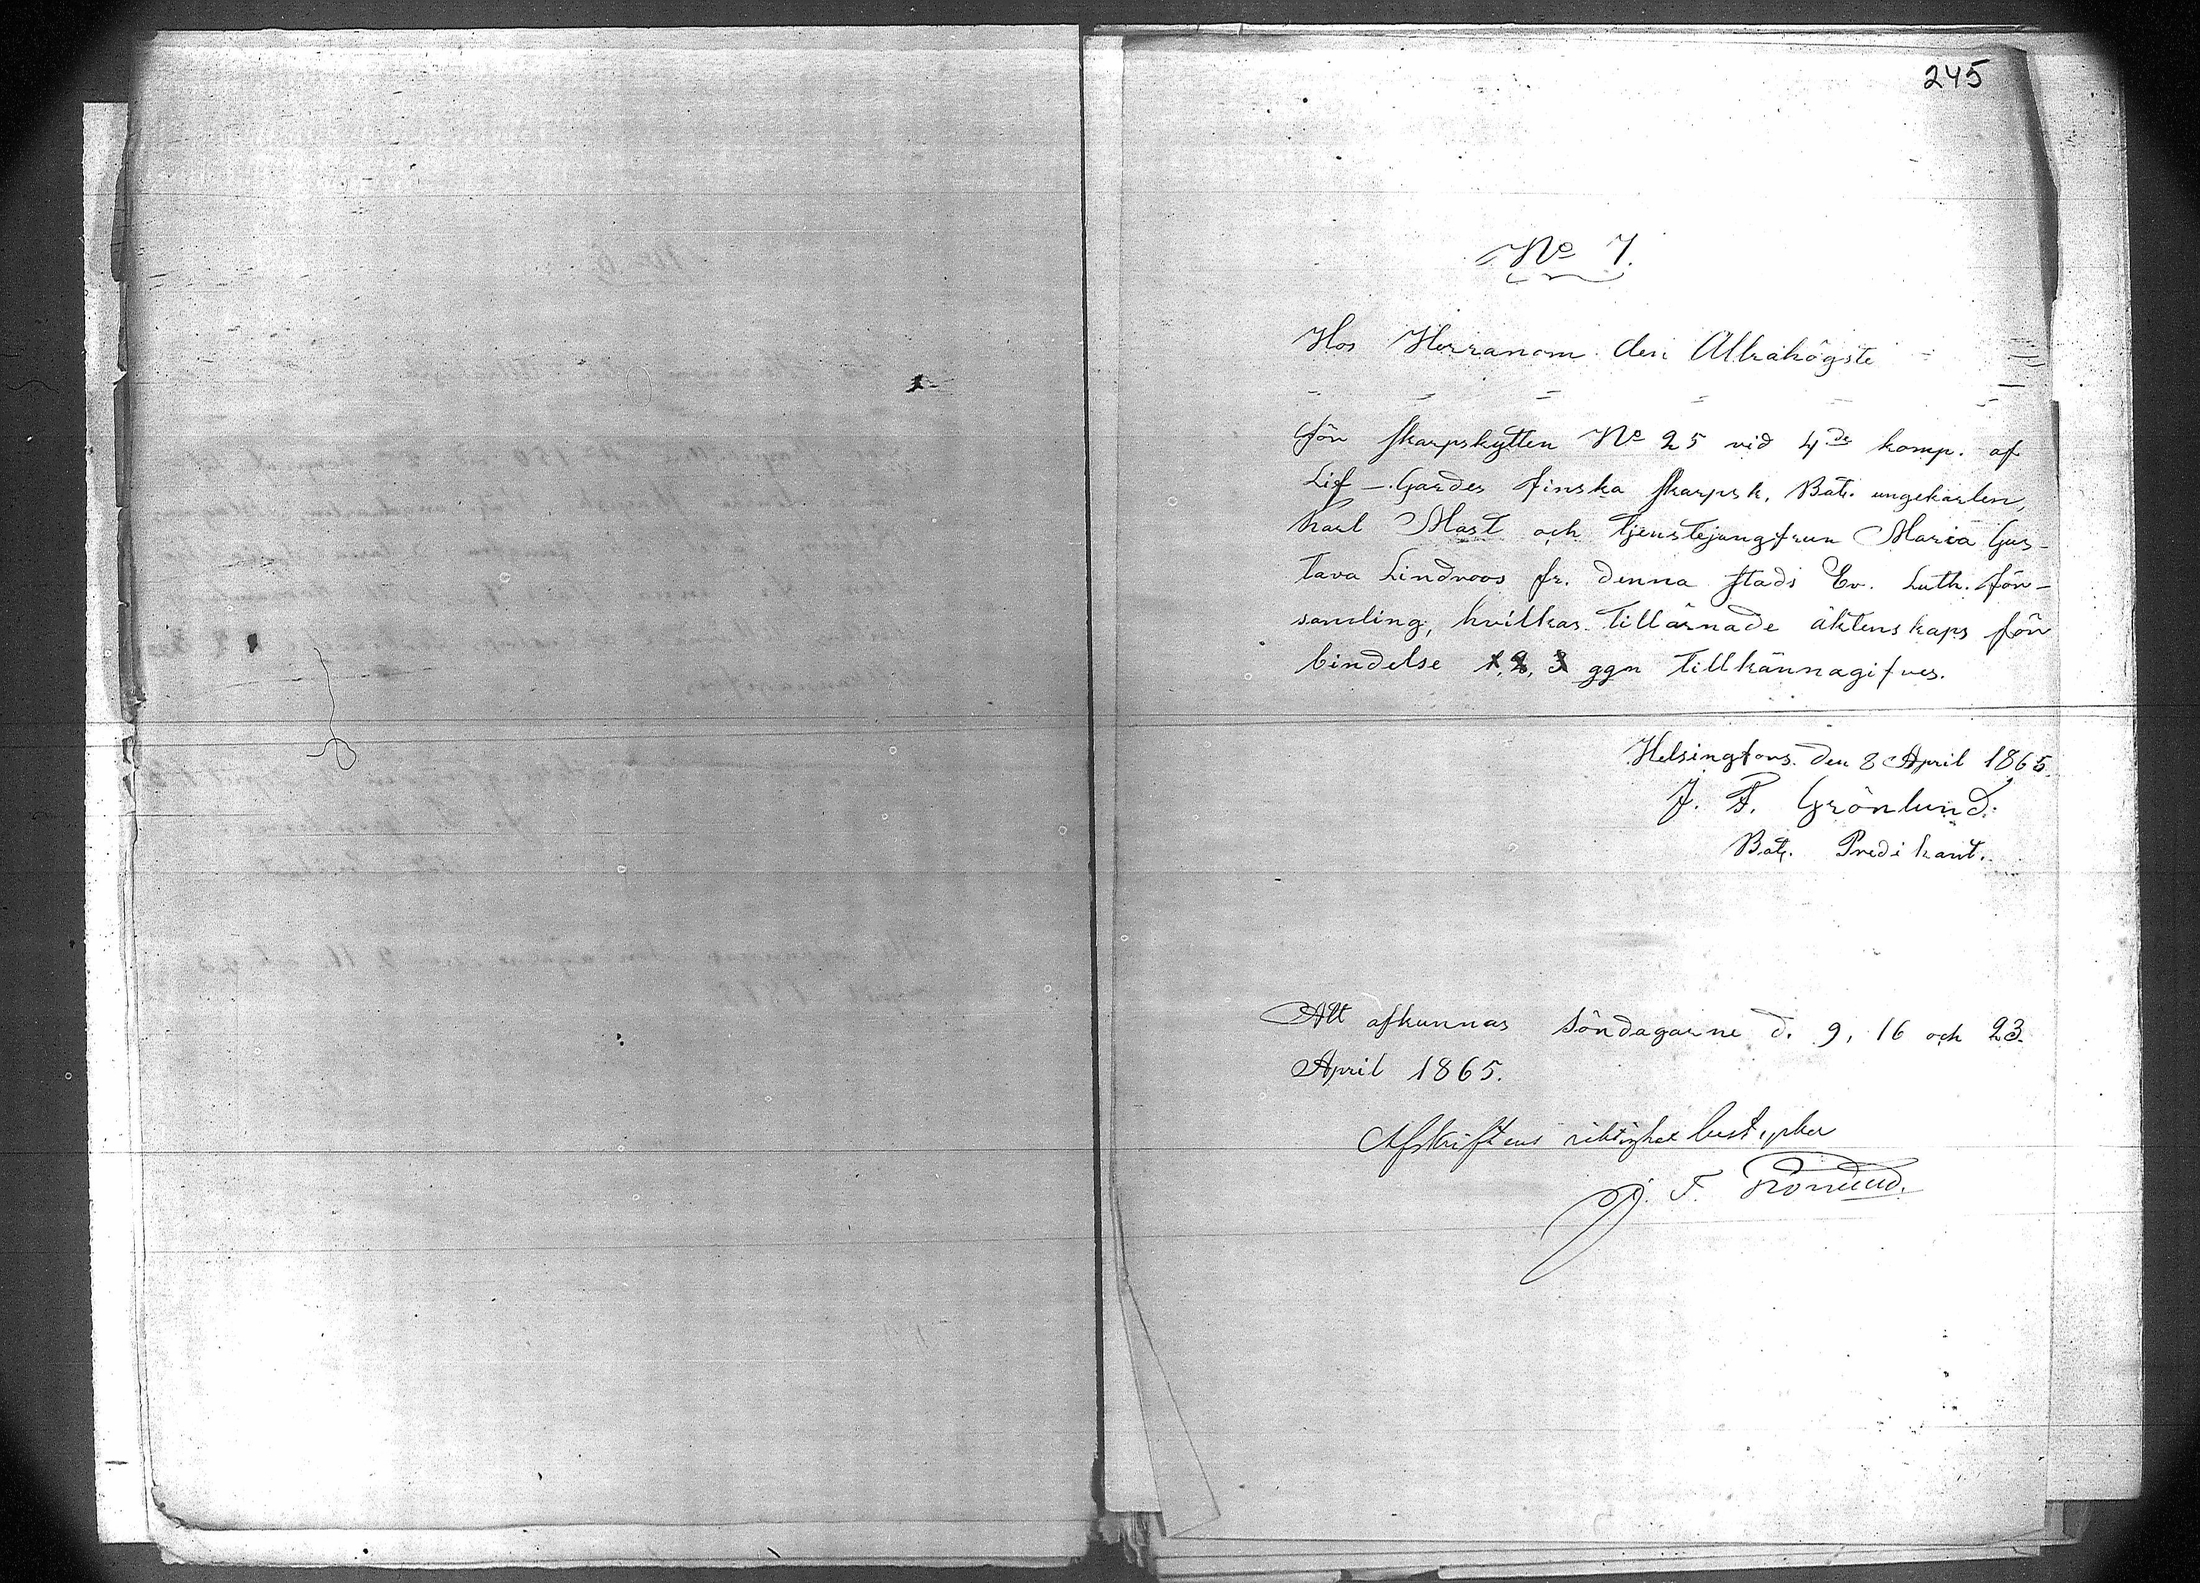 245
No 7.
Hos Herranom den Allrahögste
för skarpskytten No 25 vid 4de komp. af
Lif-Gardes finska skarpsk. Bat. ungekarlen,
Karl Mast och tjenstejungfrun Maria Gus-
tava Lindroos fr. denna stads Ev. Luth. för-
samling, hvilkas tillärnade äktenskaps för
bindelse 1, 2, 3 ggn tillkännagifves.
Helsingfors den 8 April 1865.
J. F. Grönlund.
Bat. Predikant.
Att afkunnas Söndagarne d. 9, 16 och 23.
April 1865.
Afskriftens riktighet bestyrker
J. F. Grönlund.